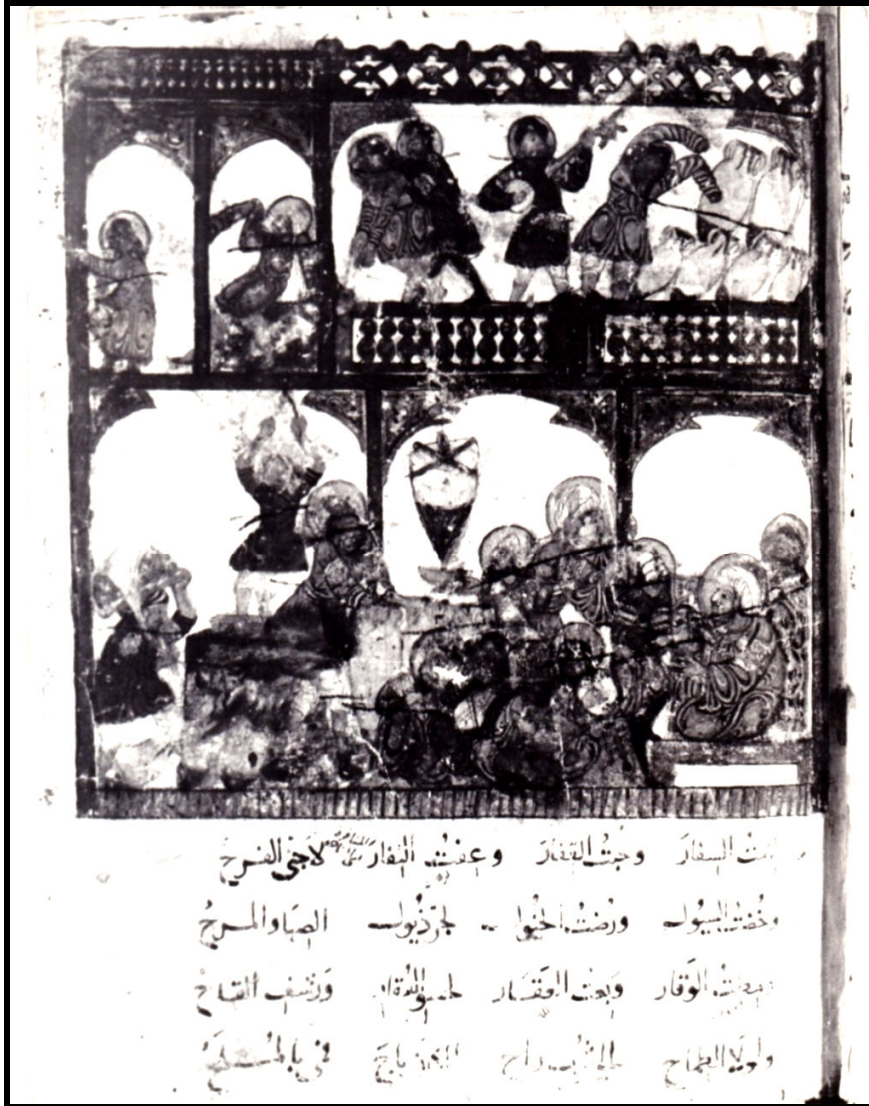 السفارَ وجبتُ القفارَ وعفتُ النفارَ لاجني الفرح
وخضتُ السيول ورضتُ الخيول لجرّ ذيول الصبا والمرح
ومطتُ الوقار وبعتُ العقار لحسو العقار ورشف القدح
ولولا الطماح الى شرب راح باح فمي بالملح